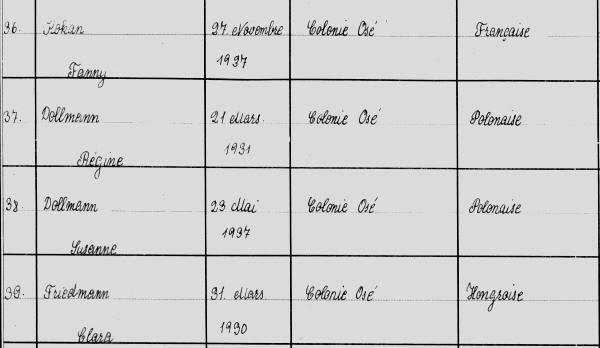 36. Fanny 27 Novembre 1937 Colonie Osé Française
37. Dollmann Régine 21 Mars. 1931 Colonie Osé Polonaise
38. Dollmann Susanne 23 Mai 1937 Colonie Osé Polonaise
39. Friedmann Clara 31. Mars. 1930 Colonie Osé Hongroise